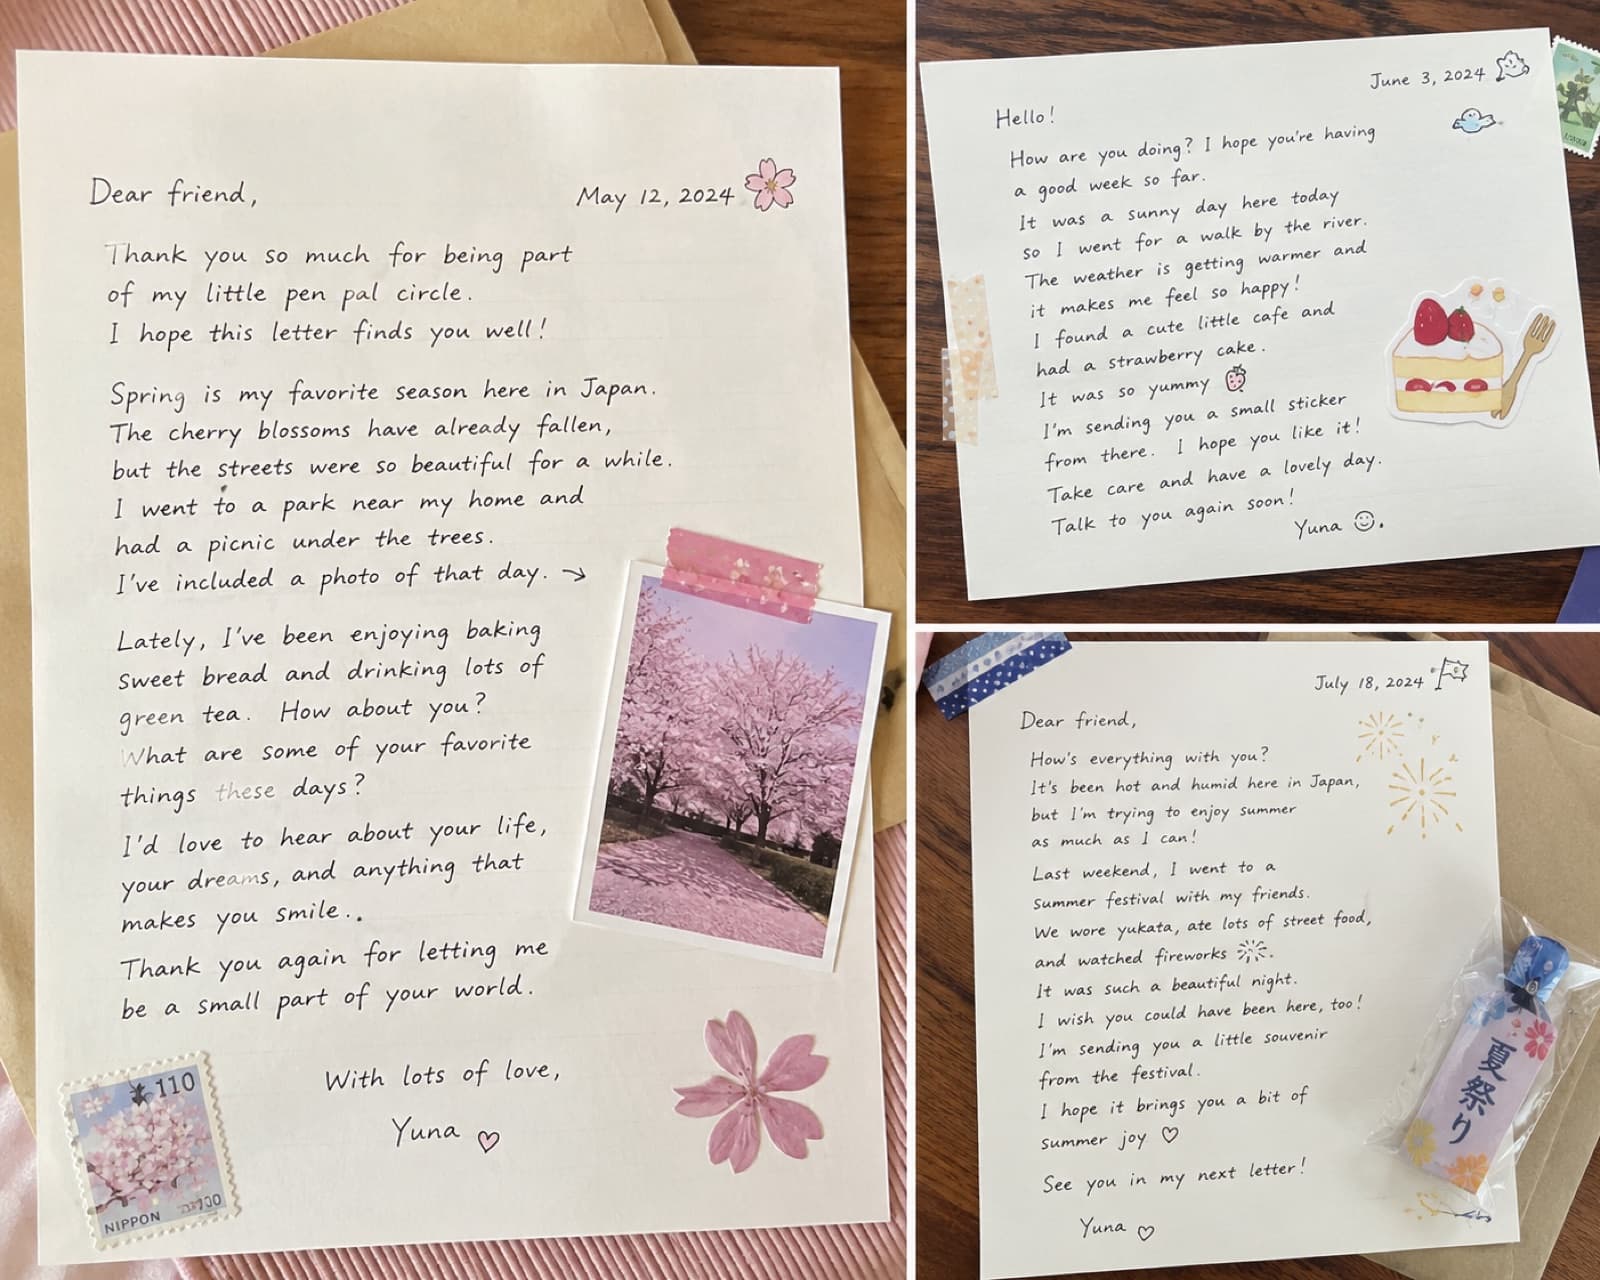 Dear friend,
May 12, 2024
Thank you so much for being part
of my little pen pal circle.
I hope this letter finds you well!
Spring is my favorite season here in Japan.
The cherry blossoms have already fallen,
but the streets were so beautiful for a while.
I went to a park near my home and
had a picnic under the trees.
I've included a photo of that day. →
Lately, I've been enjoying baking
sweet bread and drinking lots of
green tea. How about you?
What are some of your favorite
things these days?
I'd love to hear about your life,
your dreams, and anything that
makes you smile..
Thank you again for letting me
be a small part of your world.
With lots of love,
Yuna ♡
110
NIPPON
June 3, 2024
Hello!
How are you doing? I hope you're having
a good week so far.
It was a sunny day here today
so I went for a walk by the river.
The weather is getting warmer and
it makes me feel so happy!
I found a cute little cafe and
had a strawberry cake.
It was so yummy
I'm sending you a small sticker
from there. I hope you like it!
Take care and have a lovely day.
Talk to you again soon!
Yuna ☺.
July 18, 2024
Dear friend,
How's everything with you?
It's been hot and humid here in Japan,
but I'm trying to enjoy summer
as much as I can!
Last weekend, I went to a
summer festival with my friends.
We wore yukata, ate lots of street food,
and watched fireworks.
It was such a beautiful night.
I wish you could have been here, too!
I'm sending you a little souvenir
from the festival.
I hope it brings you a bit of
summer joy ♡
See you in my next letter!
Yuna ♡
夏祭り